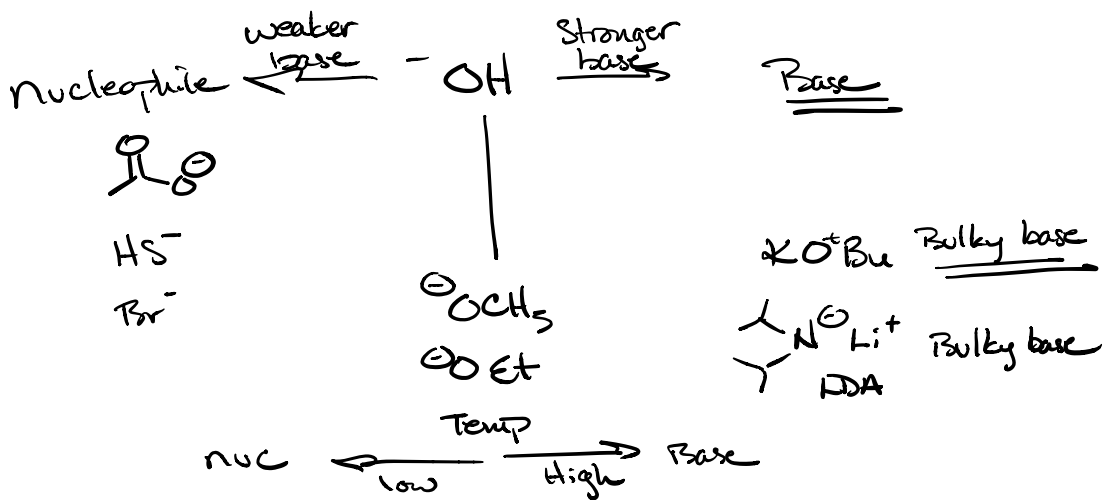 weaker base
Stronger base
nucleophile
⁻OH
Base
O
O⊖
HS⁻
KOᵗBu Bulky base
Br⁻
⊖OCH₃
N⊖ Li⁺ Bulky base
⊖OEt
LDA
Temp
nuc
low
High
Base